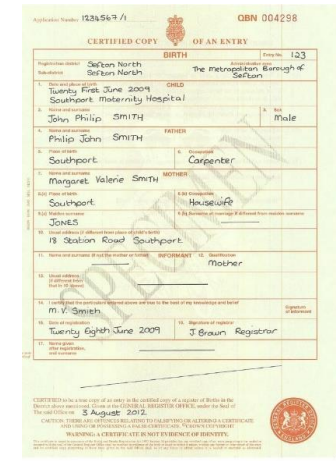 Application Number 1234567/1
QBN 004298
CERTIFIED COPY OF AN ENTRY
BIRTH
Entry No. 123
Registration district Sefton North
Administrative area
Sub-district Sefton North
The Metropolitan Borough of Sefton
1. Date and place of birth CHILD
Twenty First June 2009
Southport Maternity Hospital
2. Name and surname
John Philip SMITH
3. Sex
Male
4. Name and surname FATHER
Philip John SMITH
5. Place of birth
Southport
6. Occupation
Carpenter
7. Name and surname MOTHER
Margaret Valerie SMITH
8.(a) Place of birth
Southport
8.(b) Occupation
Housewife
9.(a) Maiden surname
JONES
9.(b) Surname at marriage if different from maiden surname
10. Usual address (if different from place of child's birth)
18 Station Road Southport
11. Name and surname (if not the mother or father) INFORMANT
12. Qualification
Mother
13. Usual address
(if different from
that in 10 above)
14. I certify that the particulars entered above are true to the best of my knowledge and belief
M. V. Smith
Signature
of informant
15. Date of registration
Twenty Eighth June 2009
16. Signature of registrar
J Brown Registrar
17. Name given
after registration,
and surname
SPECIMEN
CERTIFIED to be a true copy of an entry in the certified copy of a register of Births in the
District above mentioned. Given at the GENERAL REGISTER OFFICE, under the Seal of
the said Office on 3 August 2012
CAUTION: THERE ARE OFFENCES RELATING TO FALSIFYING OR ALTERING A CERTIFICATE
AND USING OR POSSESSING A FALSE CERTIFICATE. CROWN COPYRIGHT
WARNING: A CERTIFICATE IS NOT EVIDENCE OF IDENTITY.